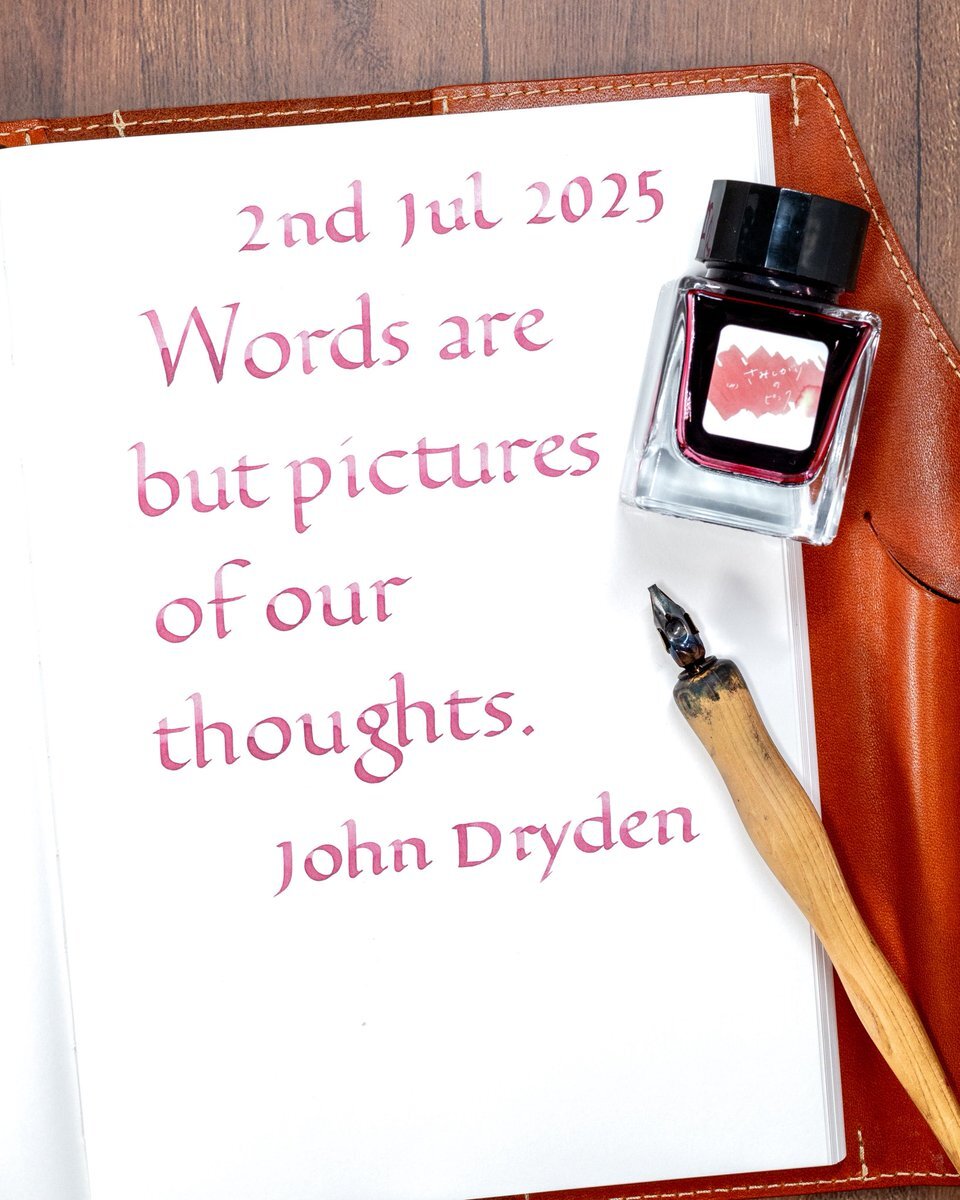 2nd Jul 2025
Words are
but pictures
of our
thoughts.
John Dryden
の
ピンク